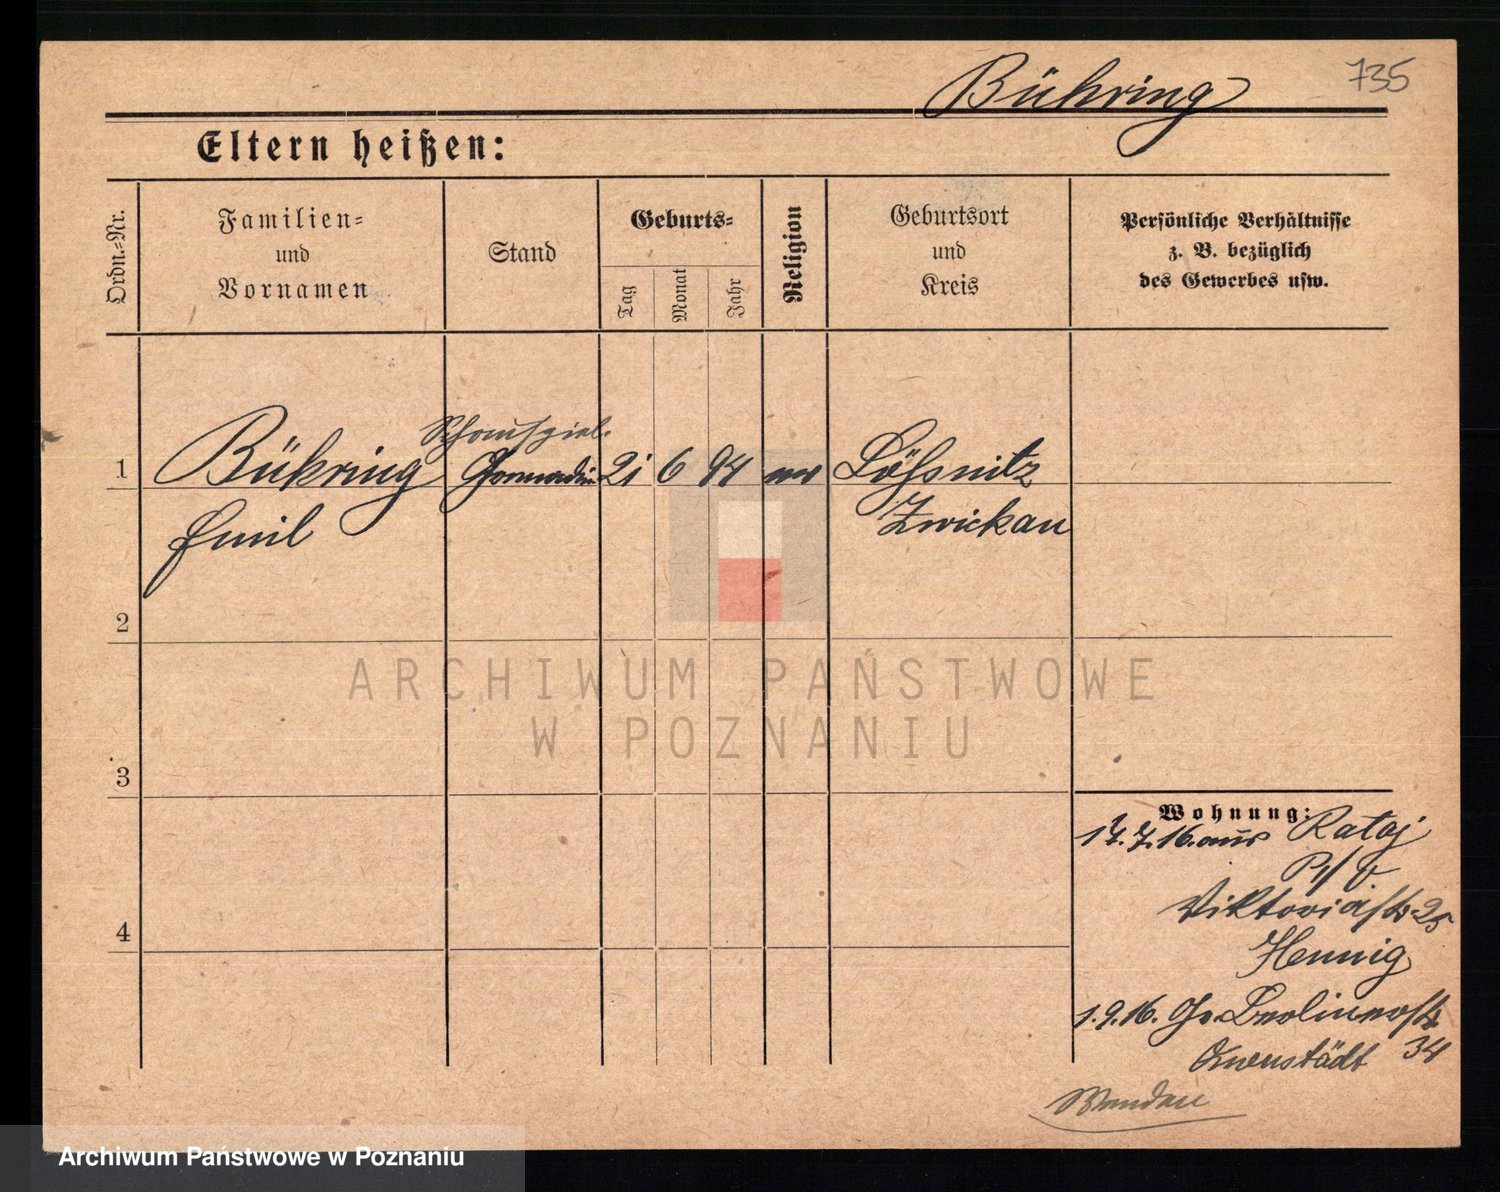 Bühring
735
Eltern heißen:
Ordn.=Nr.
Familien=
und
Vornamen
Stand
Geburts=
Tag
Monat
Jahr
Religion
Geburtsort
und
Kreis
Persönliche Verhältnisse
z. B. bezüglich
des Gewerbes usw.
1
Bühring
Emil
Schauspiel.
21
6
94
ev
Lößnitz
Zwickau
2
3
4
Wohnung:
17.7.16. aus Rataj
Viktoriastr 25
Hennig
1.9.16. Gr. Berlinerstr
34
Querstädt
Wenden
ARCHIWUM PAŃSTWOWE
W POZNANIU
Archiwum Państwowe w Poznaniu